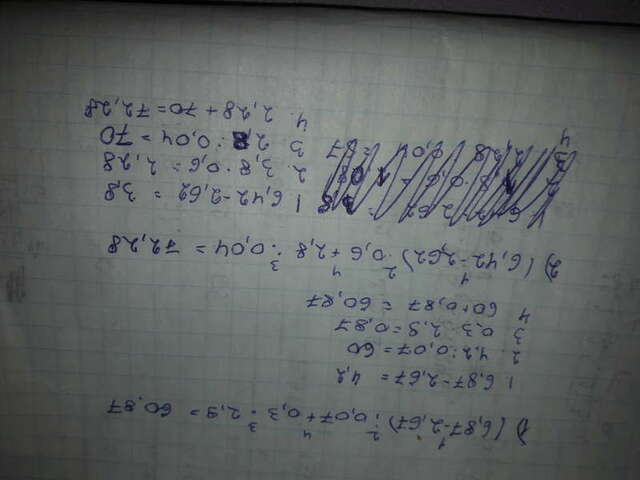 1) (6,87-2,67):0,07+0,3·2,9= 60,87
1 2 4 3
1. 6,87-2,67= 4,2
2. 4,2:0,07=60
3 0,3·2,9=0,87
4 60+0,87=60,87
2) (6,42-2,62)·0,6+2,8:0,04= 72,28
1 2 4 3
1 6,42-2,62 = 3,8
2. 3,8·0,6= 2,28
3 2,8:0,04=70
4. 2,28+70=72,28
4